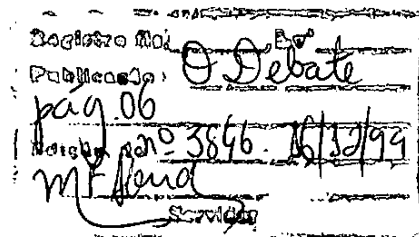 Registro No.
Publicação: O Debate
pág. 06
nº 3846. 16/12/99
Servidor